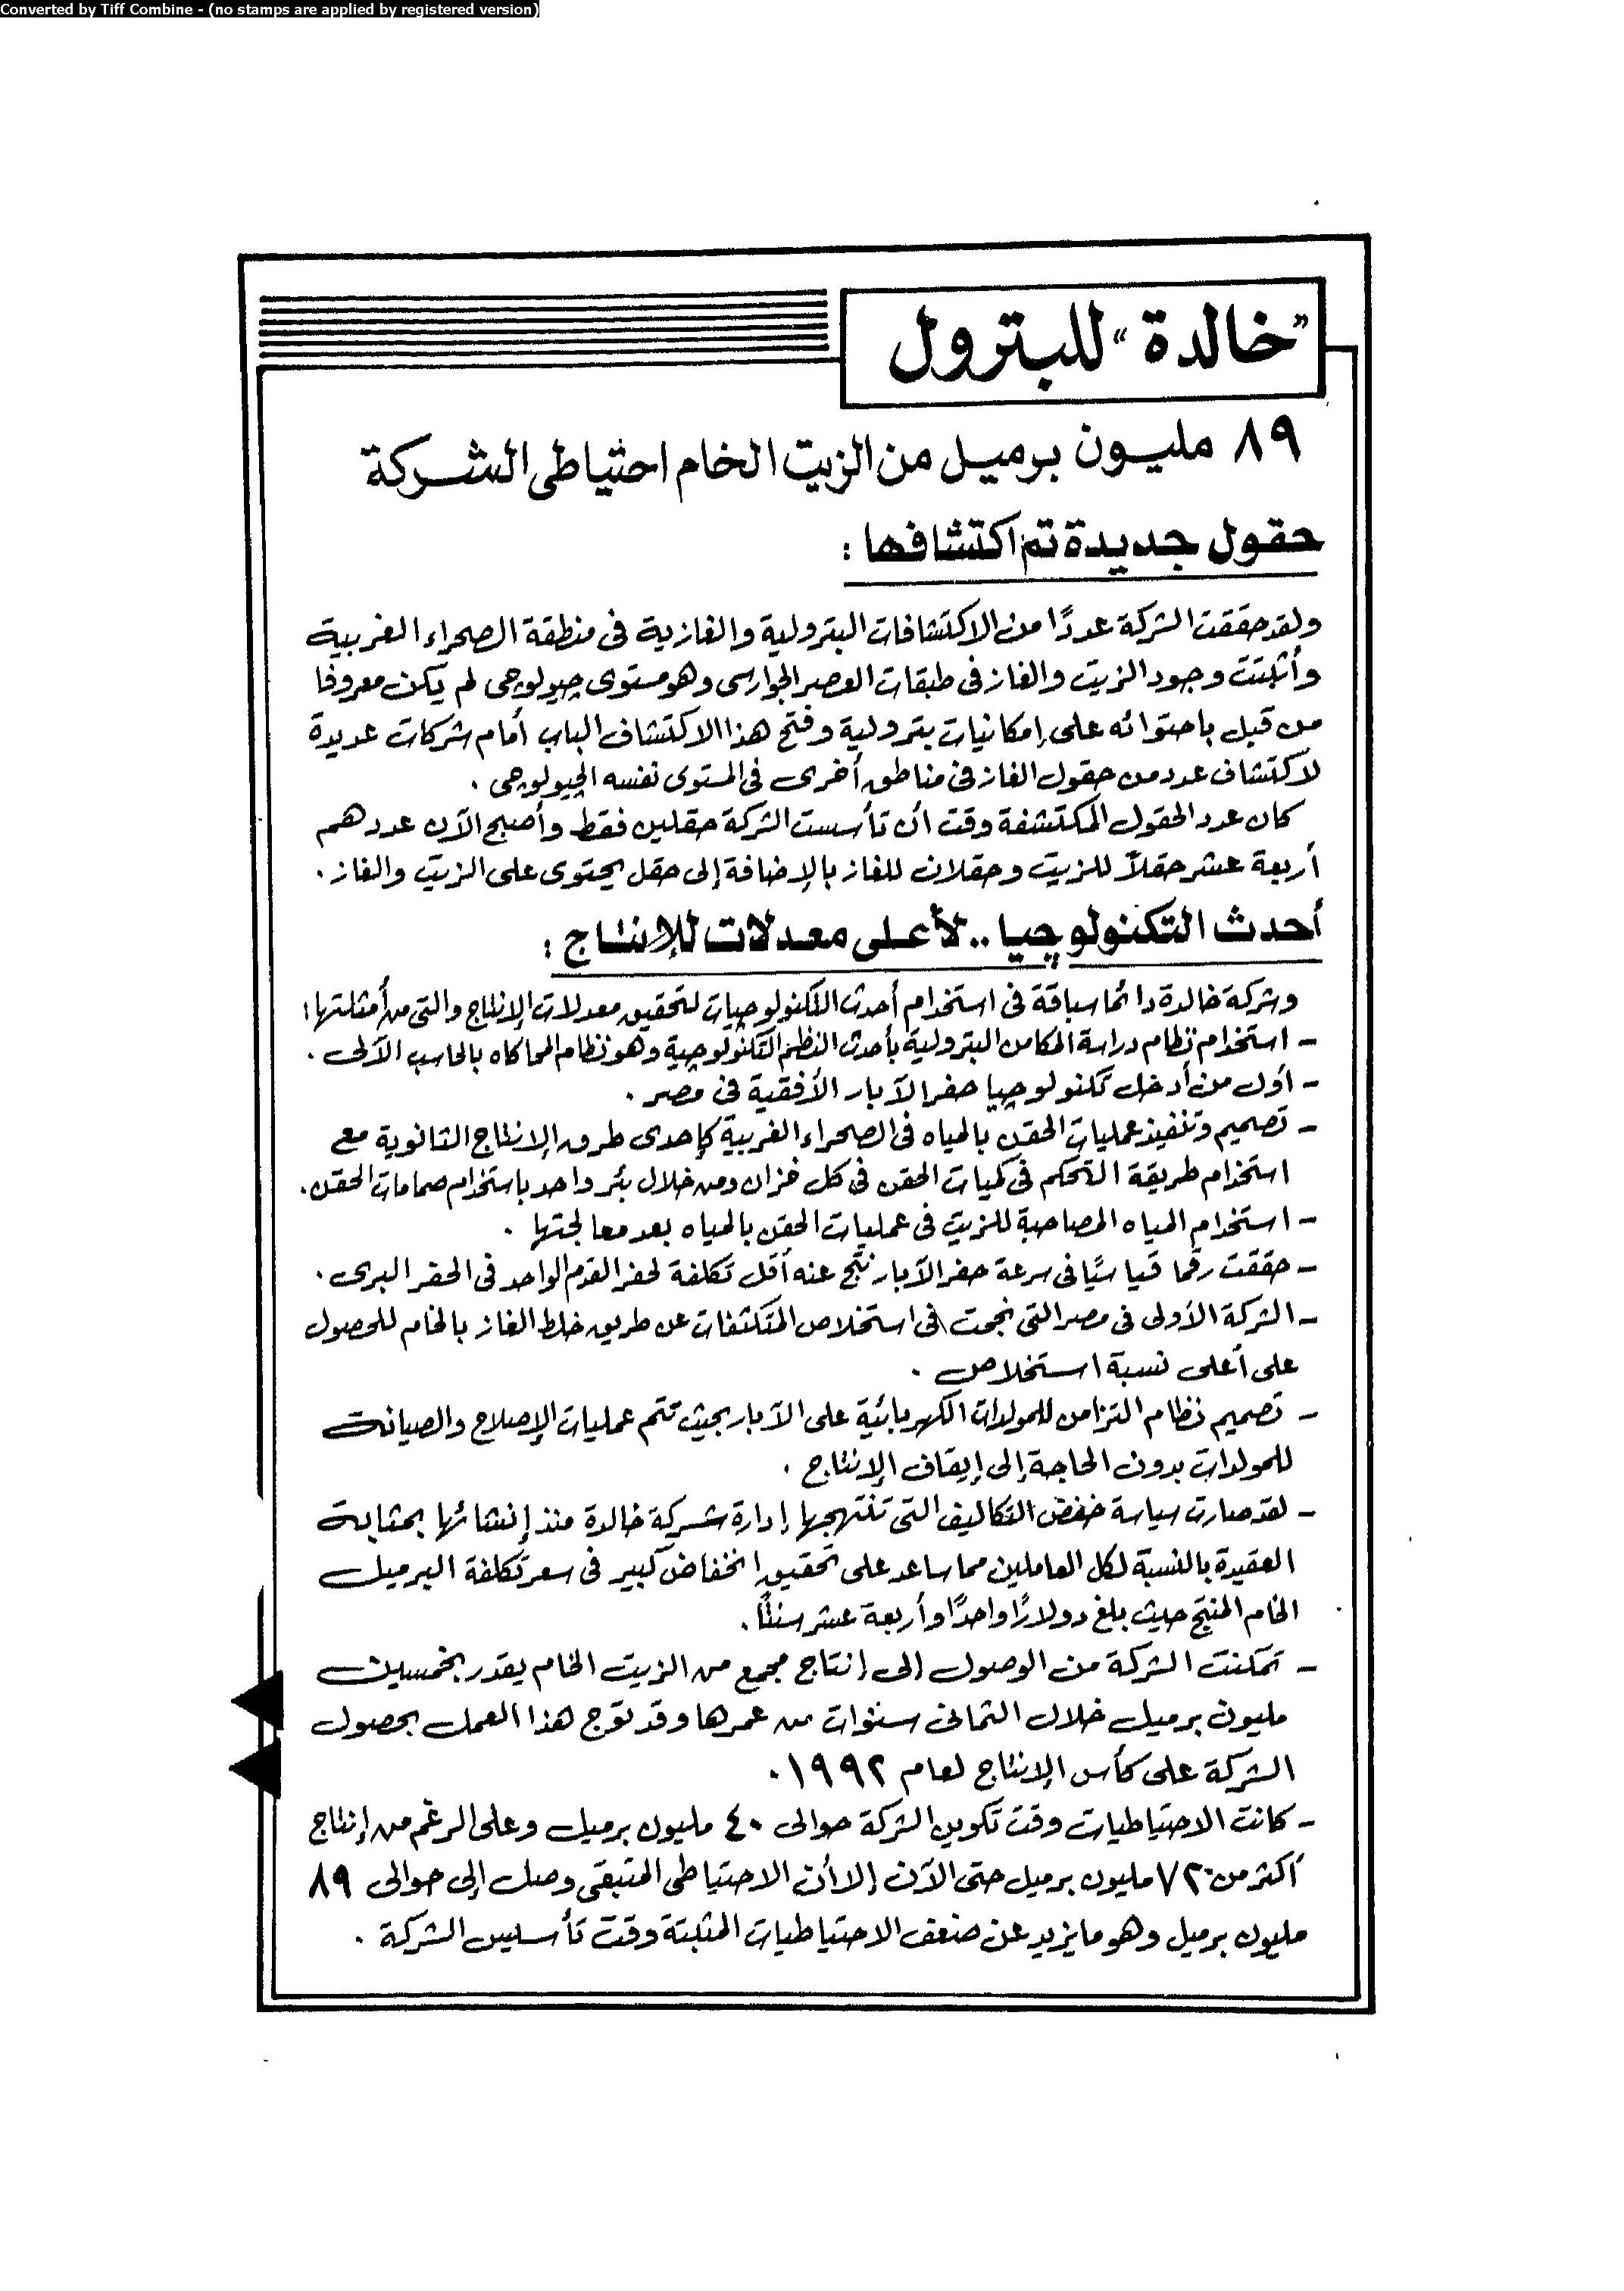 Converted by Tiff Combine - (no stamps are applied by registered version)
"خالدة" للبترول
٨٩ مليون برميل من الزيت الخام احتياطى الشركة
حقول جديدة تم اكتشافها :
ولقد حققت الشركة عددًا من الاكتشافات البترولية والغازية فى منطقة الصحراء الغربية
وأثبتت وجود الزيت والغاز فى طبقات العصر الجوارسى وهو مستوى چيولوچى لم يكن معروفا
من قبل باحتوائه على إمكانيات بترولية وفتح هذا الاكتشاف الباب أمام شركات عديدة
لاكتشاف عدد من حقول الغاز فى مناطق أخرى فى المستوى نفسه الچيولوچى .
كان عدد الحقول المكتشفة وقت أن تأسست الشركة حقلين فقط وأصبح الآن عددهم
أربعة عشر حقلاً للزيت وحقلان للغاز بالإضافة إلى حقل يحتوى على الزيت والغاز .
أحدث التكنولوچيا .. لأعلى معدلات للإنتاج :
وشركة خالدة دائما سباقة فى استخدام أحدث التكنولوچيات لتحقيق معدلات الإنتاج والتى من أمثلتها :
- استخدام نظام دراسة المكامن البترولية بأحدث النظم التكنولوچية وهو نظام المحاكاه بالحاسب الآلى .
- أول من أدخل تكنولوچيا حفر الآبار الأفقية فى مصر .
- تصميم وتنفيذ عمليات الحقن بالمياه فى الصحراء الغربية كإحدى طرق الإنتاج الثانوية مع
استخدام طريقة التحكم فى كميات الحقن فى كل خزان ومن خلال بئر واحد باستخدام صمامات الحقن .
- استخدام المياه المصاحبة للزيت فى عمليات الحقن بالمياه بعد معالجتها .
- حققت رقما قياسيًا فى سرعة حفر الآبار نتج عنه أقل تكلفة لحفر القدم الواحد فى الحفر البرى .
- الشركة الأولى فى مصر التى نجحت فى استخلاص المتكثفات عن طريق خلط الغاز بالخام للحصول
على أعلى نسبة استخلاص .
- تصميم نظام التزامن للمولدات الكهربائية على الآبار بحيث تتم عمليات الإصلاح والصيانة
للمولدات بدون الحاجة إلى إيقاف الإنتاج .
- لقد صارت سياسة خفض التكاليف التى تنتهجها إدارة شركة خالدة منذ إنشائها بمثابة
العقيدة بالنسبة لكل العاملين مما ساعد على تحقيق انخفاض كبير فى سعر تكلفة البرميل
الخام المنتج حيث بلغ دولارًا واحدًا وأربعة عشر سنتًا .
- تمكنت الشركة من الوصول إلى إنتاج مجمع من الزيت الخام يقدر بخمسين
مليون برميل خلال الثمانى سنوات من عمرها وقد توج هذا العمل بحصول
الشركة على كأس الإنتاج لعام ١٩٩٢ .
- كانت الاحتياطيات وقت تكوين الشركة حوالى ٤٠ مليون برميل وعلى الرغم من إنتاج
أكثر من ٧٢ مليون برميل حتى الآن إلا أن الاحتياطى المتبقى وصل إلى حوالى ٨٩
مليون برميل وهو ما يزيد عن ضعف الاحتياطيات المثبتة وقت تأسيس الشركة .